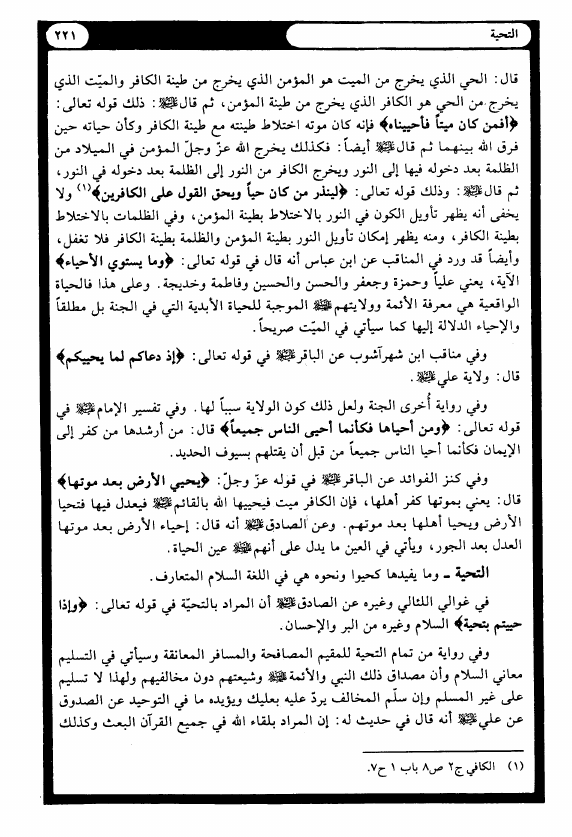 التحية
٢٢١
قال: الحي الذي يخرج من الميت هو المؤمن الذي يخرج من طينة الكافر والميّت الذي
يخرج من الحي هو الكافر الذي يخرج من طينة المؤمن، ثم قال ﷺ: ذلك قوله تعالى:
﴿أفمن كان ميتاً فأحييناه﴾ فإنه كان موته اختلاط طينته مع طينة الكافر وكأن حياته حين
فرق الله بينهما ثم قال ﷺ أيضاً: فكذلك يخرج الله عزّ وجلّ المؤمن في الميلاد من
الظلمة بعد دخوله فيها إلى النور ويخرج الكافر من النور إلى الظلمة بعد دخوله في النور،
ثم قال ﷺ: وذلك قوله تعالى: ﴿لينذر من كان حياً ويحق القول على الكافرين﴾(١) ولا
يخفى أنه يظهر تأويل الكون في النور بالاختلاط بطينة المؤمن، وفي الظلمات بالاختلاط
بطينة الكافر، ومنه يظهر إمكان تأويل النور بطينة المؤمن والظلمة بطينة الكافر فلا تغفل،
وأيضاً قد ورد في المناقب عن ابن عباس أنه قال في قوله تعالى: ﴿وما يستوي الأحياء﴾
الآية، يعني علياً وحمزة وجعفر والحسن والحسين وفاطمة وخديجة. وعلى هذا فالحياة
الواقعية هي معرفة الأئمة وولايتهم ﷺ الموجبة للحياة الأبدية التي في الجنة بل مطلقاً
والإحياء الدلالة إليها كما سيأتي في الميّت صريحاً.
وفي مناقب ابن شهرآشوب عن الباقر ﷺ في قوله تعالى: ﴿إذ دعاكم لما يحييكم﴾
قال: ولاية علي ﷺ.
وفي رواية أُخرى الجنة ولعل ذلك كون الولاية سبباً لها. وفي تفسير الإمام ﷺ في
قوله تعالى: ﴿ومن أحياها فكأنما أحيى الناس جميعاً﴾ قال: من أرشدها من كفر إلى
الإيمان فكأنما أحيا الناس جميعاً من قبل أن يقتلهم بسيوف الحديد.
وفي كنز الفوائد عن الباقر ﷺ في قوله عزّ وجلّ: ﴿يحيي الأرض بعد موتها﴾
قال: يعني بموتها كفر أهلها، فإن الكافر ميت فيحييها الله بالقائم ﷺ فيعدل فيها فتحيا
الأرض ويحيا أهلها بعد موتهم. وعن الصادق ﷺ أنه قال: إحياء الأرض بعد موتها
العدل بعد الجور، ويأتي في العين ما يدل على أنهم ﷺ عين الحياة.
التحية ـ وما يفيدها كحيوا ونحوه هي في اللغة السلام المتعارف.
في غوالي اللئالي وغيره عن الصادق ﷺ أن المراد بالتحيّة في قوله تعالى: ﴿وإذا
حييتم بتحية﴾ السلام وغيره من البر والإحسان.
وفي رواية من تمام التحية للمقيم المصافحة والمسافر المعانقة وسيأتي في التسليم
معاني السلام وأن مصداق ذلك النبي والأئمة ﷺ وشيعتهم دون مخالفيهم ولهذا لا تسليم
على غير المسلم وإن سلّم المخالف يردّ عليه بعليك ويؤيده ما في التوحيد عن الصدوق
عن علي ﷺ أنه قال في حديث له: إن المراد بلقاء الله في جميع القرآن البعث وكذلك
(١) الكافي ج٢ ص٨ باب ١ ح٧.